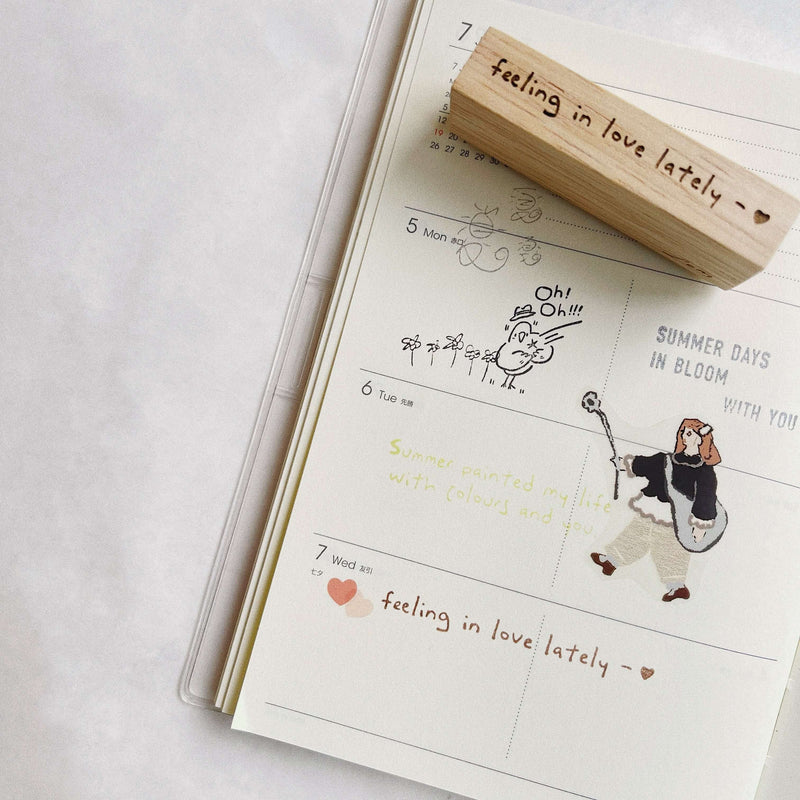 7
feeling in love lately -
12
19 20
26 27 28 29 30
5 Mon 赤口
Oh!
Oh!!!
SUMMER DAYS
IN BLOOM
WITH YOU
6 Tue 先勝
Summer painted my life
with colours and you
7 Wed 友引
七夕
feeling in love lately -